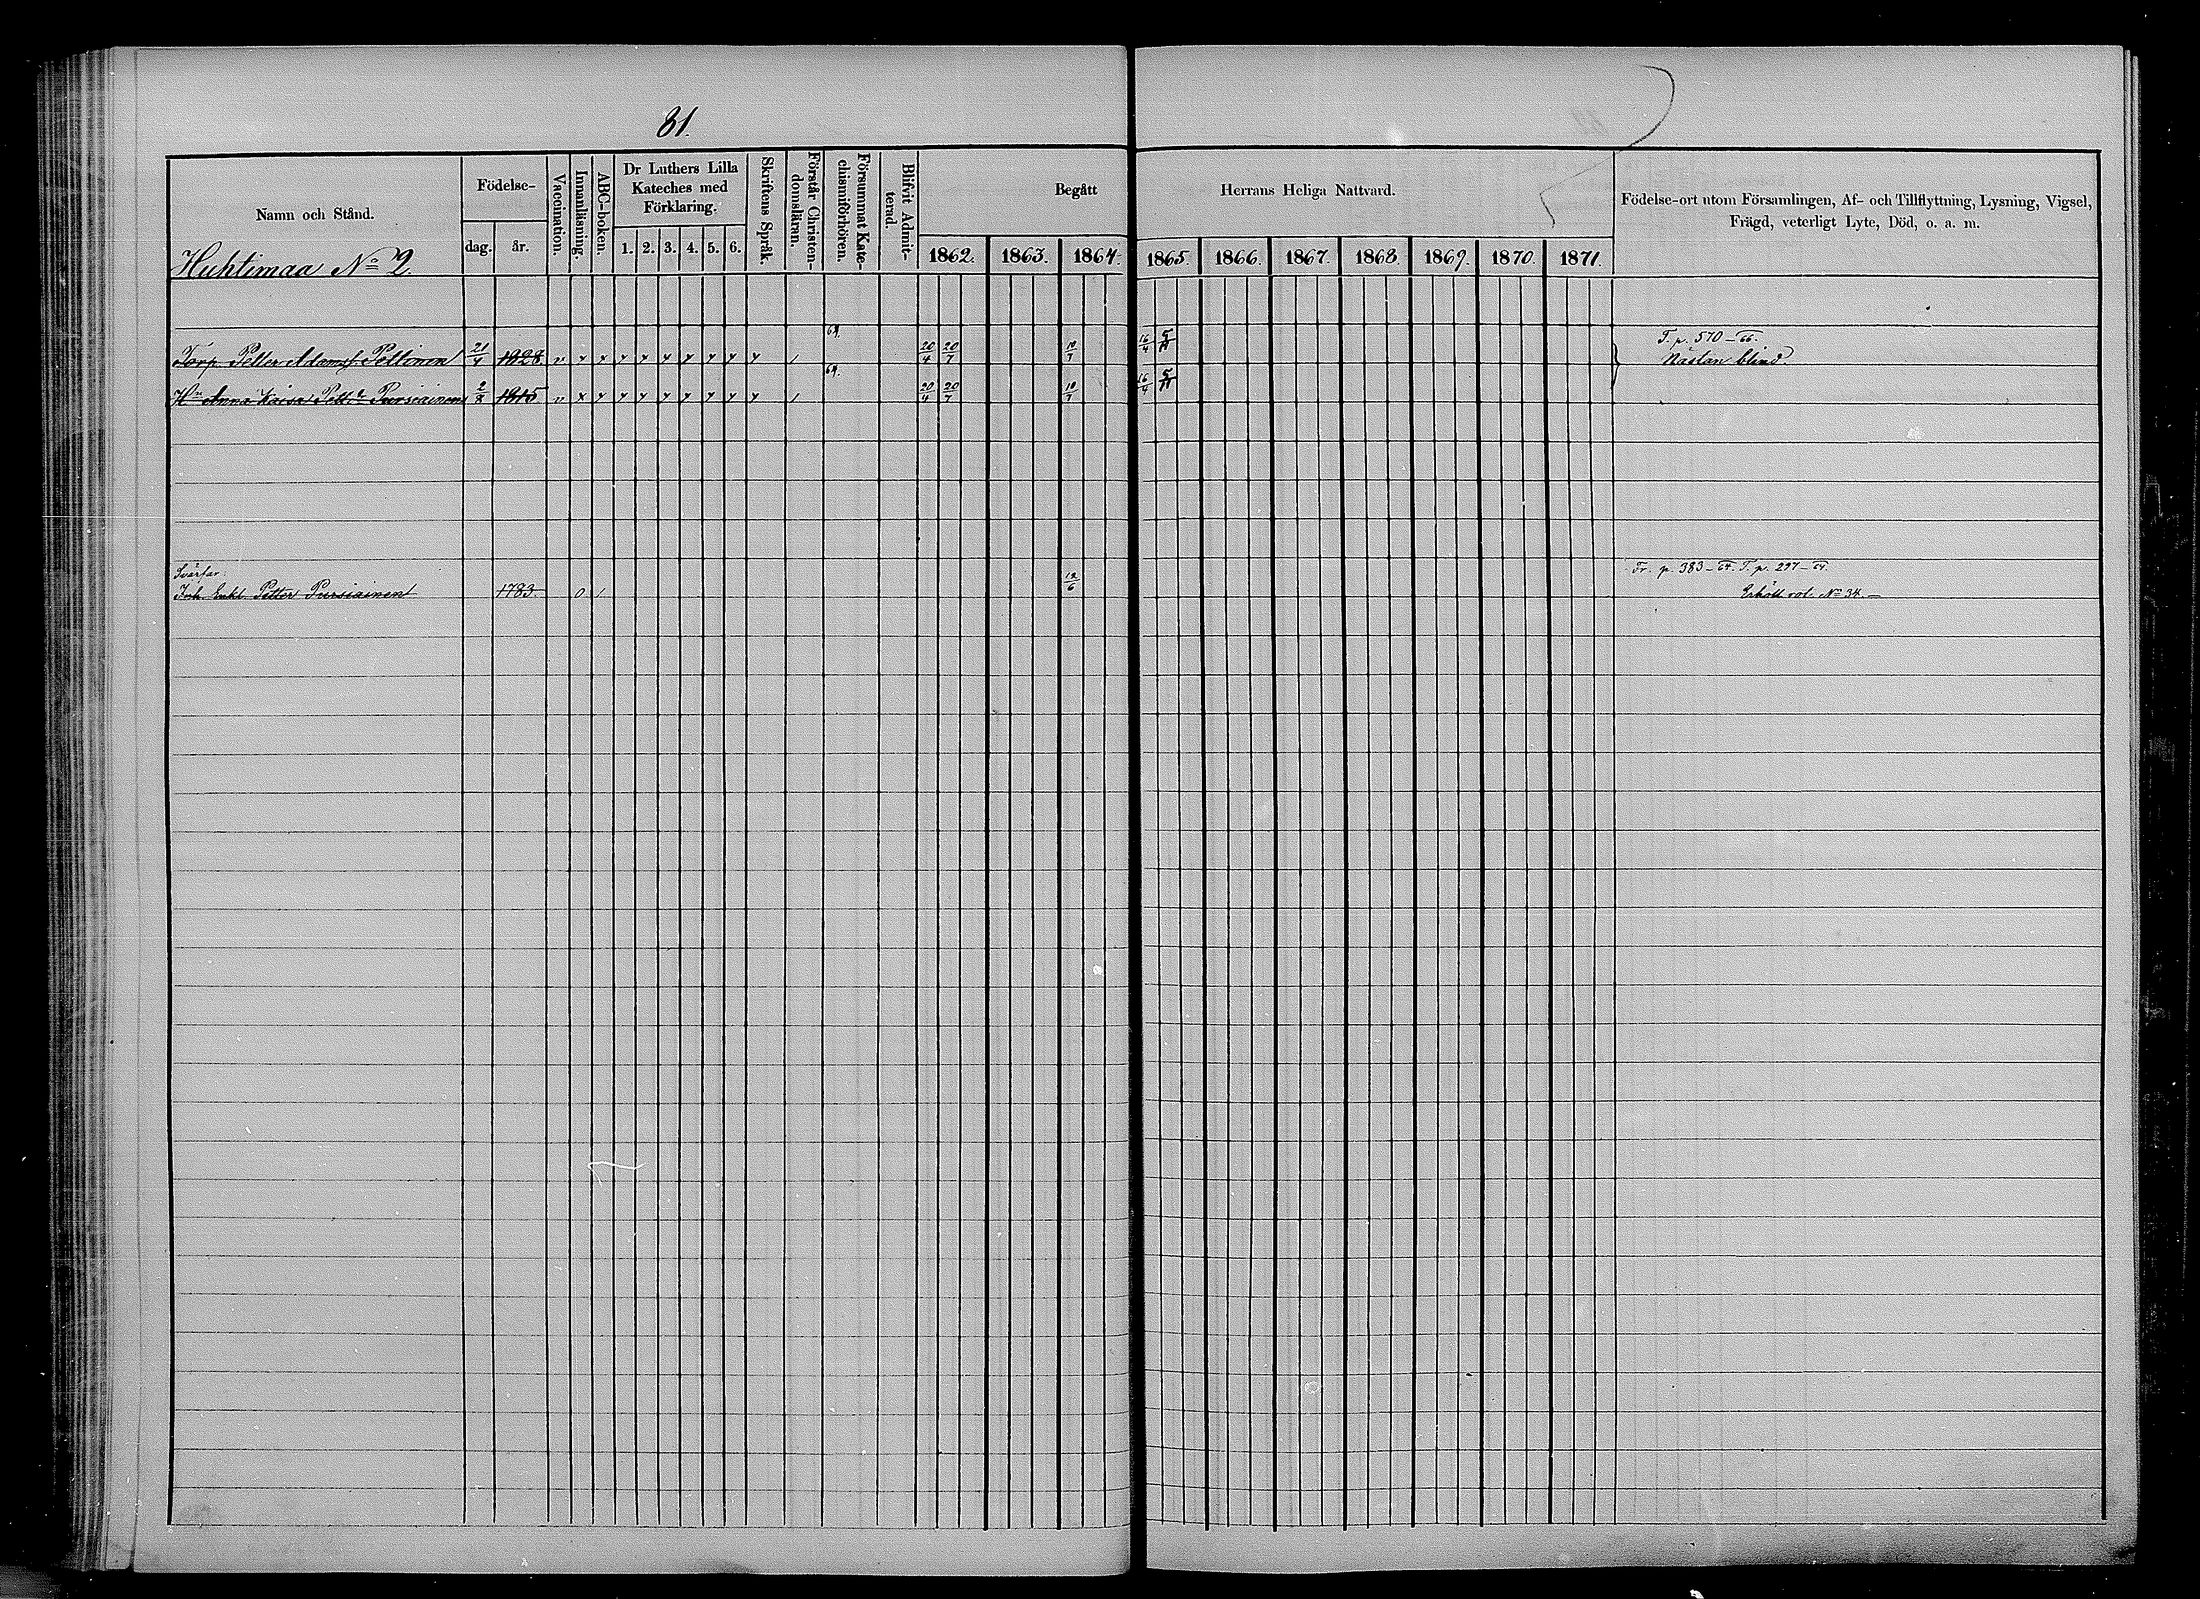 81.
Namn och Stånd.
Födelse-
dag. år.
Vaccination.
Innanläsning.
ABC-boken.
Dr Luthers Lilla
Kateches med
Förklaring.
1. 2. 3. 4. 5. 6.
Skriftens Språk.
Förstår Christen-
domsläran.
Försummat Kate-
chismiförhören.
Blifvit Admit-
terad.
Begått Herrans Heliga Nattvard.
1862. 1863. 1864. 1865. 1866. 1867. 1868 1869. 1870. 1871.
Födelse-ort utom Församlingen, Af- och Tillflyttning, Lysning, Vigsel,
Frägd, veterligt Lyte, Död, o. a. m.
Huhtimaa No 2.
64. T. p. 570 — 66.
Torp. Petter Adamsf Pöllönen 21/4 1828 v x x y y y y y y y / 20/4 20/7 10/7 16/4 5/11 Nästan blind
64.
Hu Anna Kaisa Pett. Pursiainen 2/8 1815 v x y y y y y y y y / 20/4 20/7 10/7 16/4 5/11
Svärfar Fr. p. 383 — 64. T. p. 297 — 64.
Inh. Enkl. Petter Pursiainen 1783. 0 / 12/6 Erhöll No 34. —